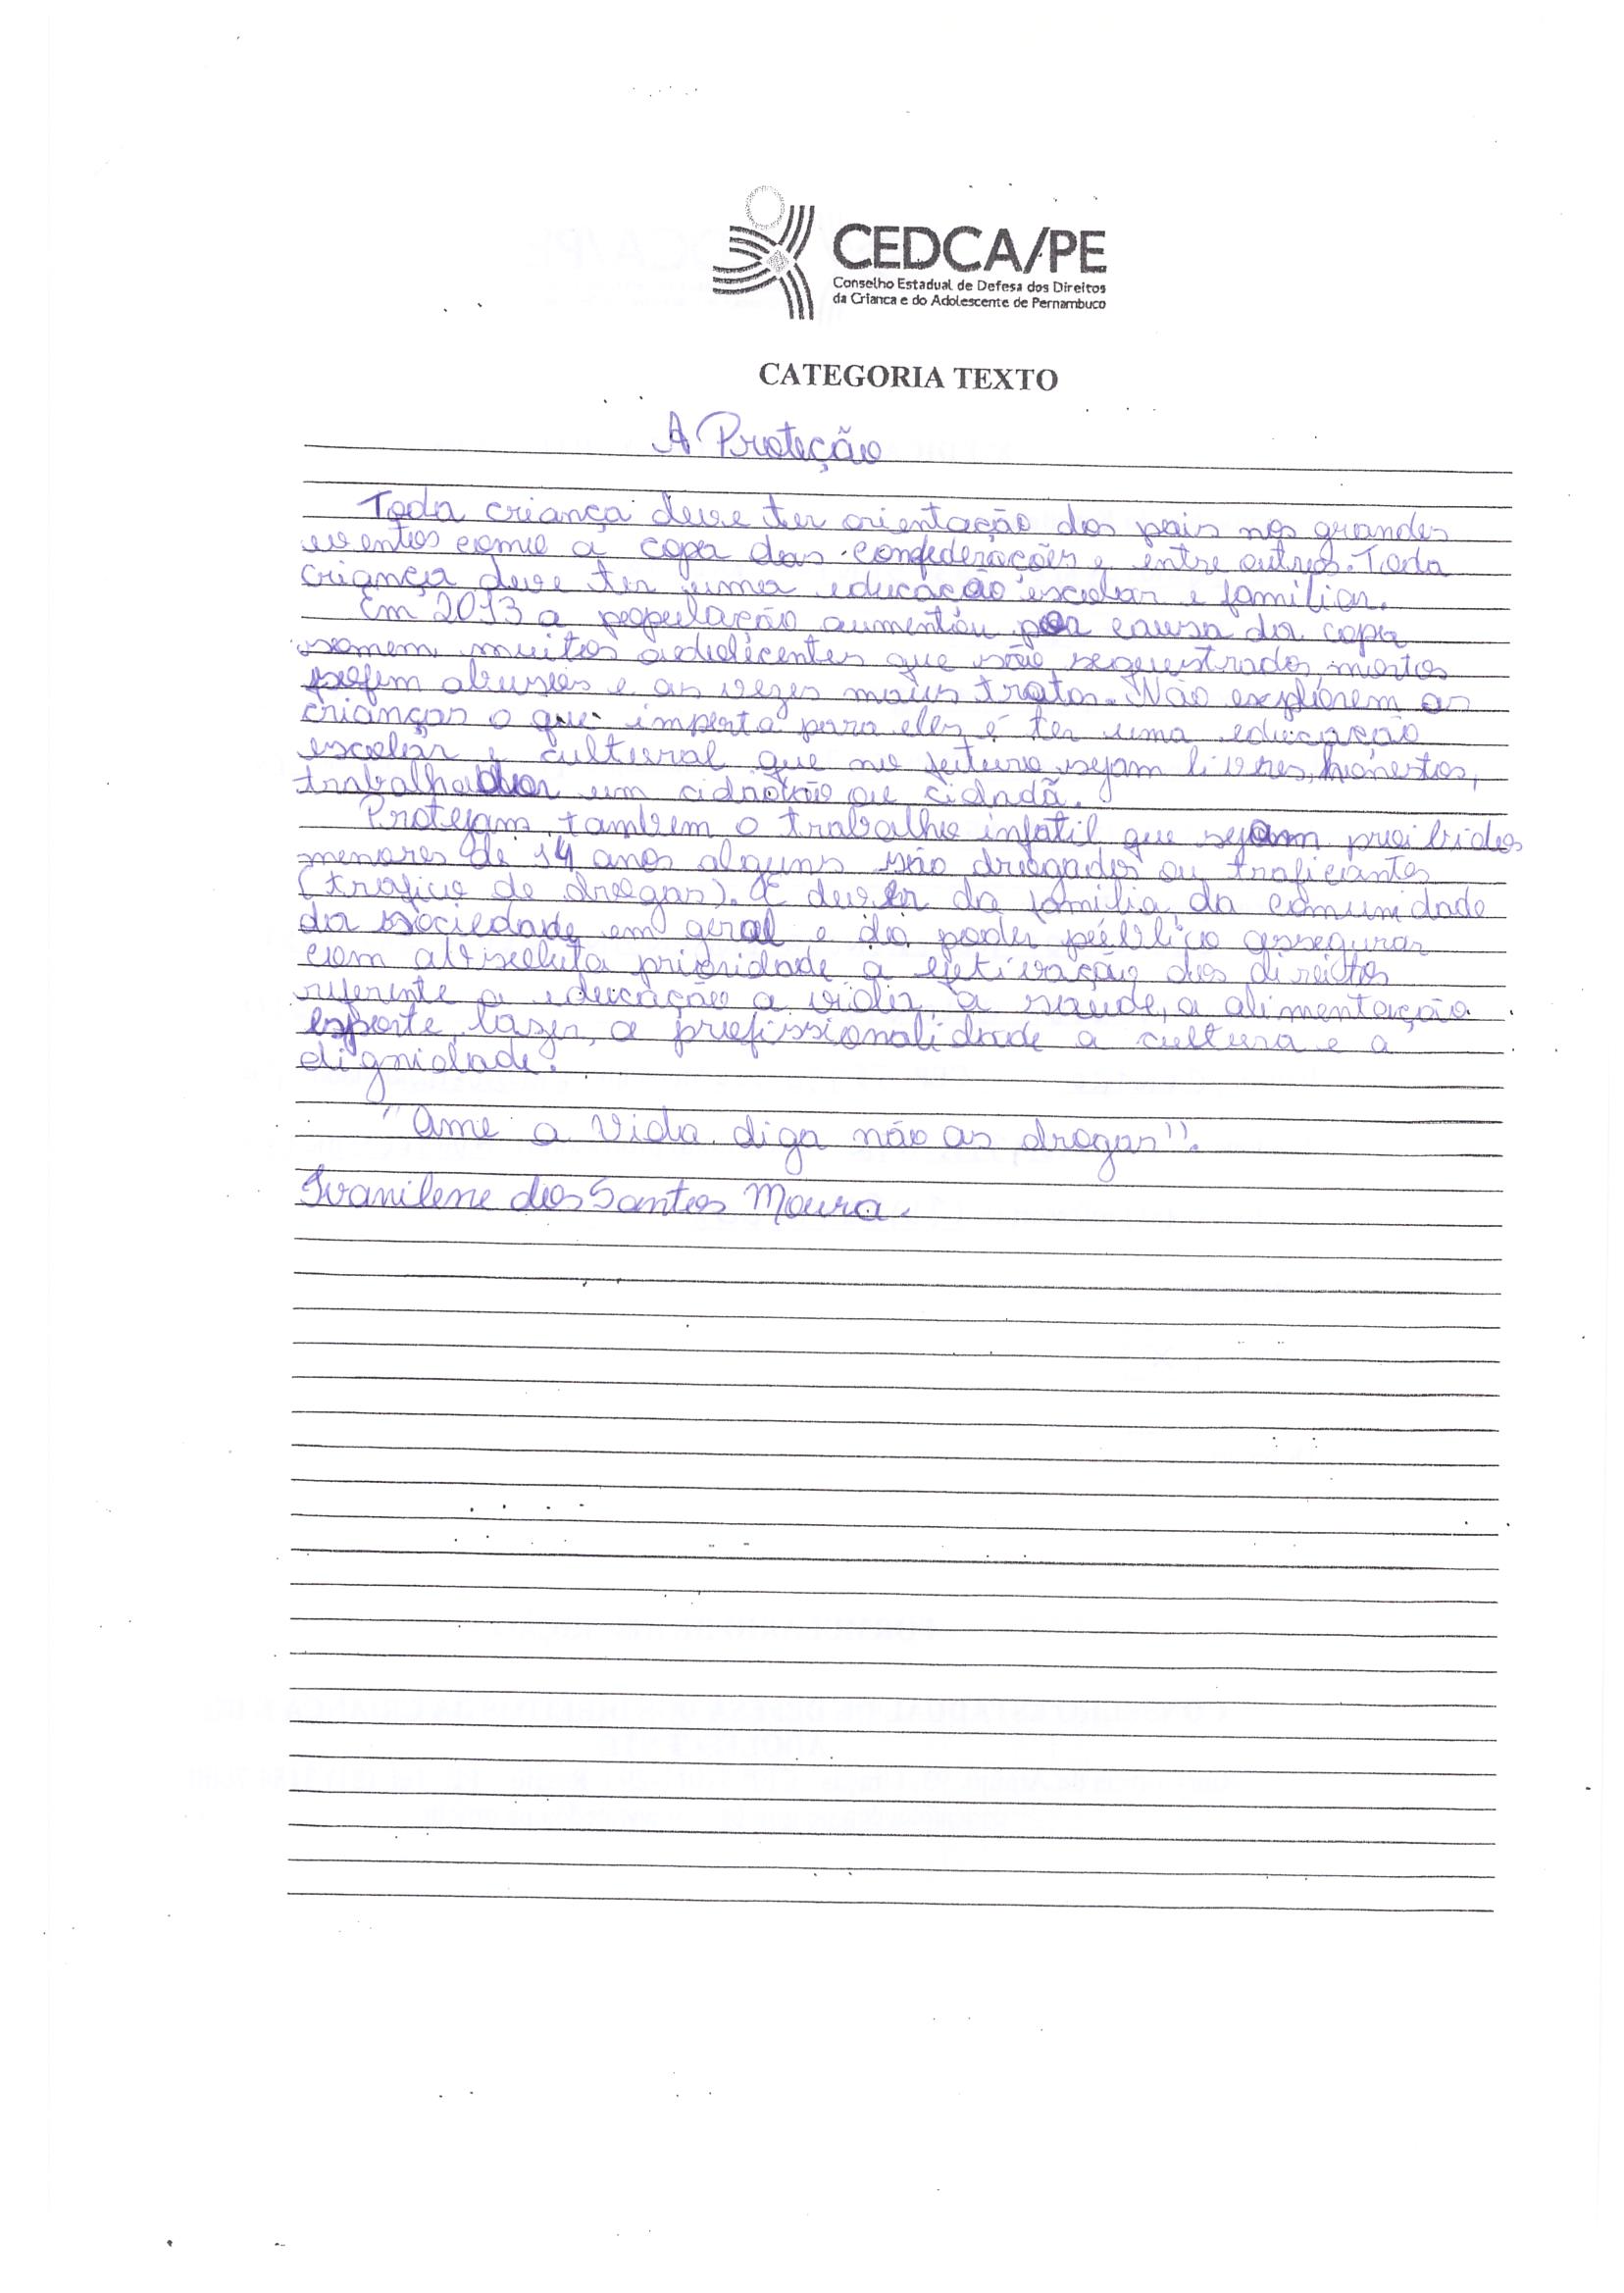 CEDCA/PE
Conselho Estadual de Defesa dos Direitos
da Crianca e do Adolescente de Pernambuco
CATEGORIA TEXTO
A Proteção
Toda criança deve ter orientação dos pais nos grandes
eventos como a copa das confederações e entre outros. Toda
criança deve ter uma educação escolar e familiar.
Em 2013 a população aumentou por causa da copa
somem muitos adolecentes que são sequestrados, mortos
sofem abusos e as vezes maus tratos. Não explorem as
crianças o que importa para eles é ter uma educação
escolar e cultural que no futuro sejam livres, honestos,
trabalhador um cidadão ou cidadã.
Protejam tambem o trabalho infatil que sejam proibidos
menores de 14 anos alguns são drogados ou traficantes
(trafico de drogas). É dever da familia da comunidade
da sociedade em geral e do poder público assegurar
com absoluta prioridade a efetivação dos direitos
referente a educação a vida, a saude, a alimentação
esporte, lazer, a profissionalidade a cultura e a
dignidade.
"Ame a Vida diga não as drogas".
Ivanilene dos Santos Moura.